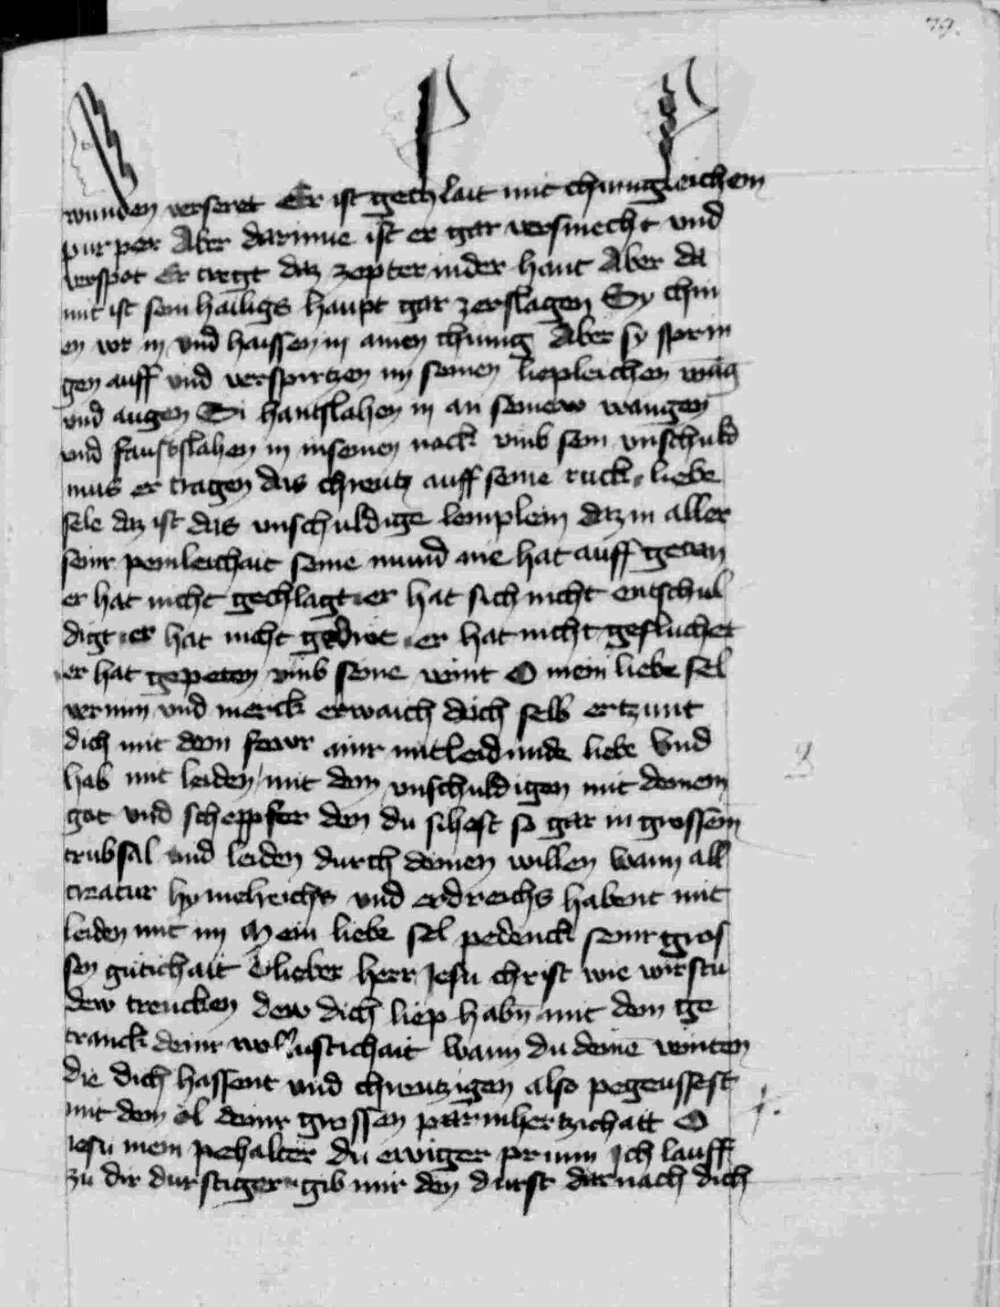 79.
wunden verseret Er ist gechlait mit chunigleichem
purper Aber darinne ist er gar versmecht und
verspot Er tregt daz zepter inder hant Aber da
mit ist sein hailigs haupt gar zerslagen Sy chni
en vor in und haissen in ainen chunig Aber sy sprin
gen auff und verspirtzen im seinen liepleichen
und augen Si hantslahen in an seinew wangen
und faustslahen in inseinen nack umb sein unschuld
mus er tragen das chreutz auff seine ruck liebe
sele daz ist das unschuldige lemplein daz in aller
seinr peinleichait seine mund nie hat auff getan
er hat nicht gechlagt er hat sich nicht entschul
digt er hat nicht gedrot er hat nicht gefluchet
er hat gepeten umb seine veint O mein liebe sel
vernim und merck erwaich dich selb ertzunt
dich mit dem fewr ainr mitleidunde liebe Und
hab mit leiden mit dem unschuldigen mit deinem
got und scheppfer den du sihest so gar in grossem
trubsal und leiden durch deinen willen wann all
creatur hymelreichs und erdreichs habent mit
leiden mit im Mein liebe sel pedenck seinr gros
sen gutichait O lieber herr Jesu christ wie wirstu
dew trencken dew dich liep habn mit dem ge
tranck deinr wollustichait wann du deine veinten
die dich hassent und chreutzigen also pegeussest
mit dem öl deinr grossen parmhertzichait O
iesu mein pehalter du ewiger prunn Ich lauff
zu dir durstiger gib mir den durst darnach dich